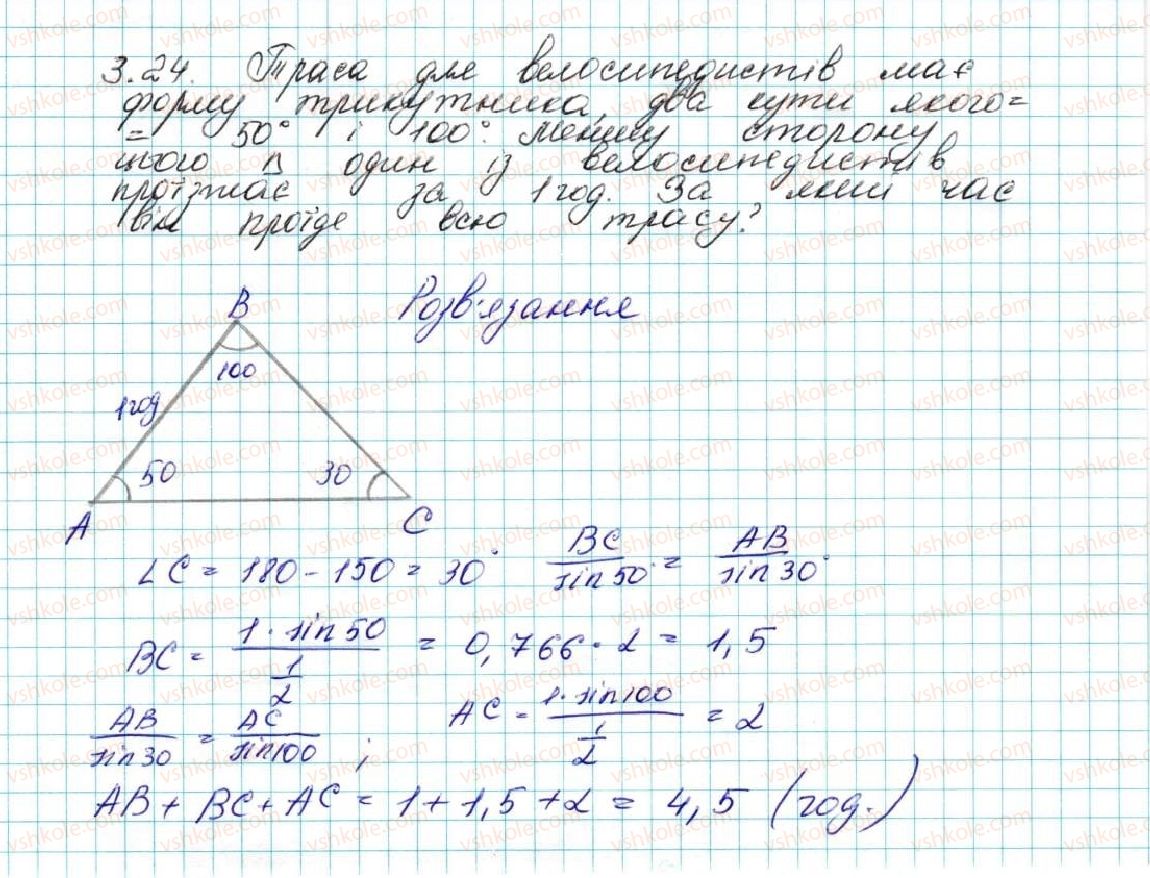 3.24. Траса для велосипедистів має
форму трикутника, два кути якого=
= 50° і 100°. Меншу сторону
цього ∩ один із велосипедистів
проїзжає за 1 год. За який час
він проїде всю трасу?
Розв'язання
B
100
1 год
50
30
A
C
∠C = 180 - 150 = 30° BC/sin 50° = AB/sin 30°
BC = 1·sin 50/(1/2) = 0,766·2 = 1,5
AB/sin 30 = AC/sin 100 ; AC = 1·sin 100/(1/2) = 2
AB + BC + AC = 1 + 1,5 + 2 = 4,5 (год.)
vshkole.com